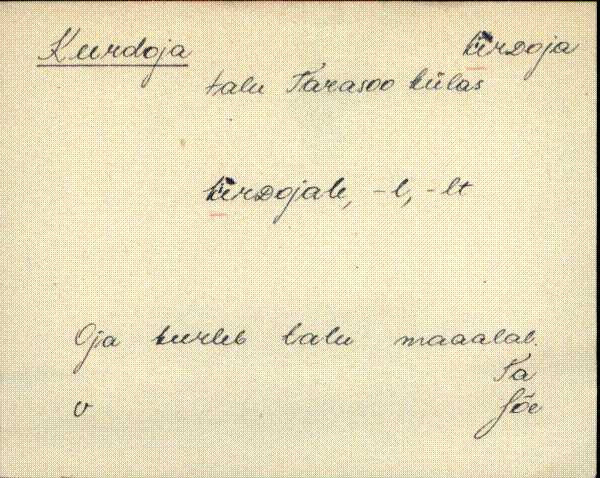 Kurdoja kùrᴅoja
talu Tarasoo külas
kùrᴅojale, -l, -lt
Oja kurleb talu maaalal.
Ta
v Jõe